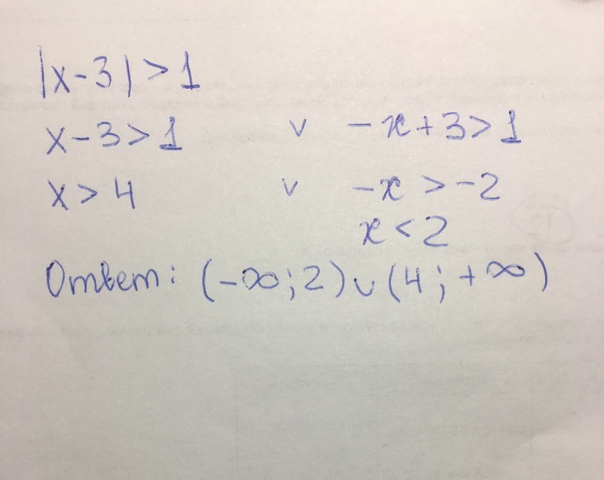 |x-3|>1
x-3>1 v -x+3>1
x>4 v -x>-2
x<2
Ответ: (-∞;2)∪(4;+∞)